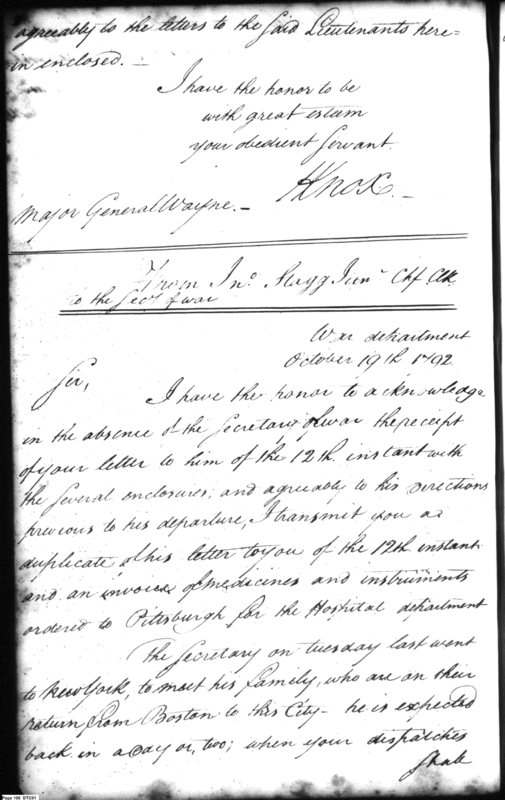 agreeably to the letters to the Said Lieutenants here=
in enclosed. —
I have the honor to be
with great esteem
your obedient Servant.
HKnox. —
Major General Wayne. —
From Jno. Stagg Junr. Chf. Clk
to the Secy. of war
War department
October 19th 1792
Sir,
I have the honor to acknowledge
in the absence of the Secretary of war the receipt
of your letter to him of the 12th instant with
the several enclosures; and agreeably to his directions
previous to his departure, I transmit you a
duplicate of his letter to you of the 12th instant.
and an invoice of medicines and instruments
ordered to Pittsburgh for the Hospital department
The Secretary on tuesday last went
to New York, to meet his family, who are on their
return from Boston to this City — he is expected
back in a day or, two; when your dispatches
Shall
Page 166 DTC01